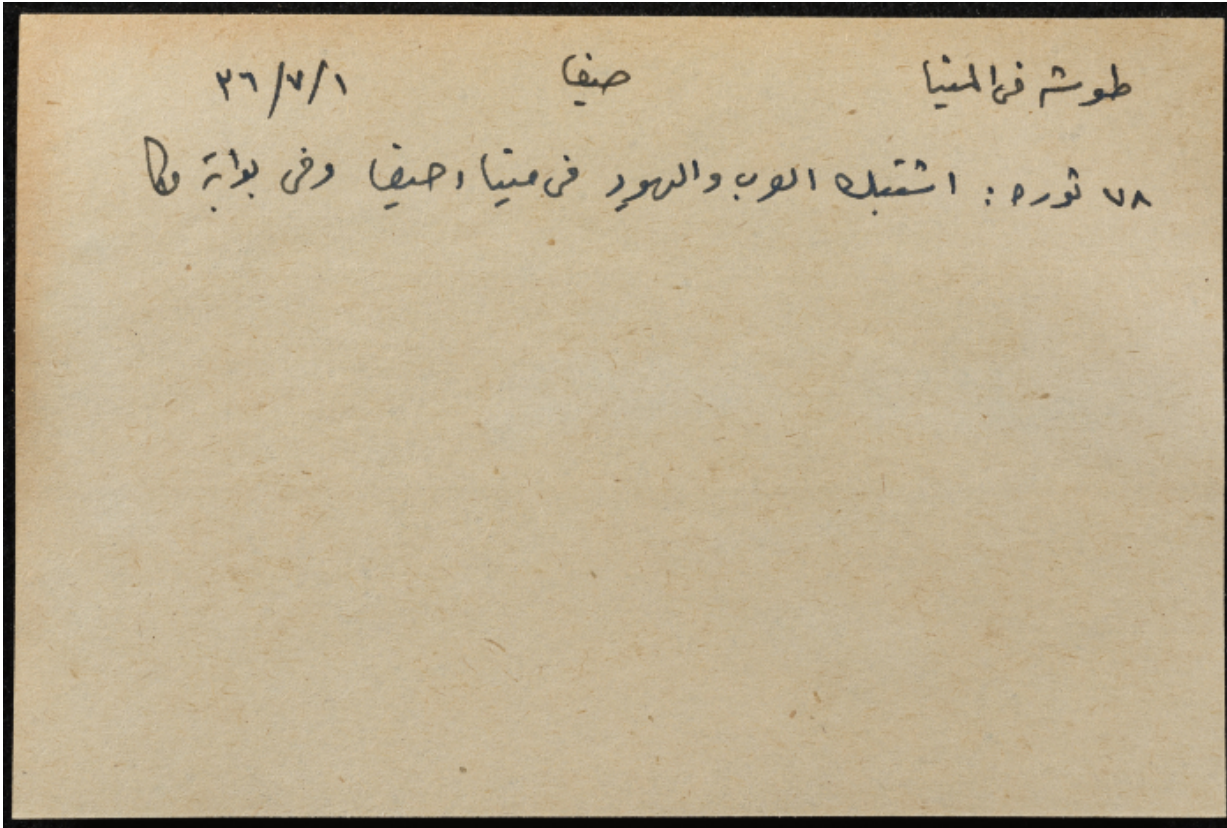 طوشه في المينا حيفا ٣٦/٧/١
٧٨ ثوره: اشتبك العرب واليهود في ميناء حيفا وفي بوابة عكا